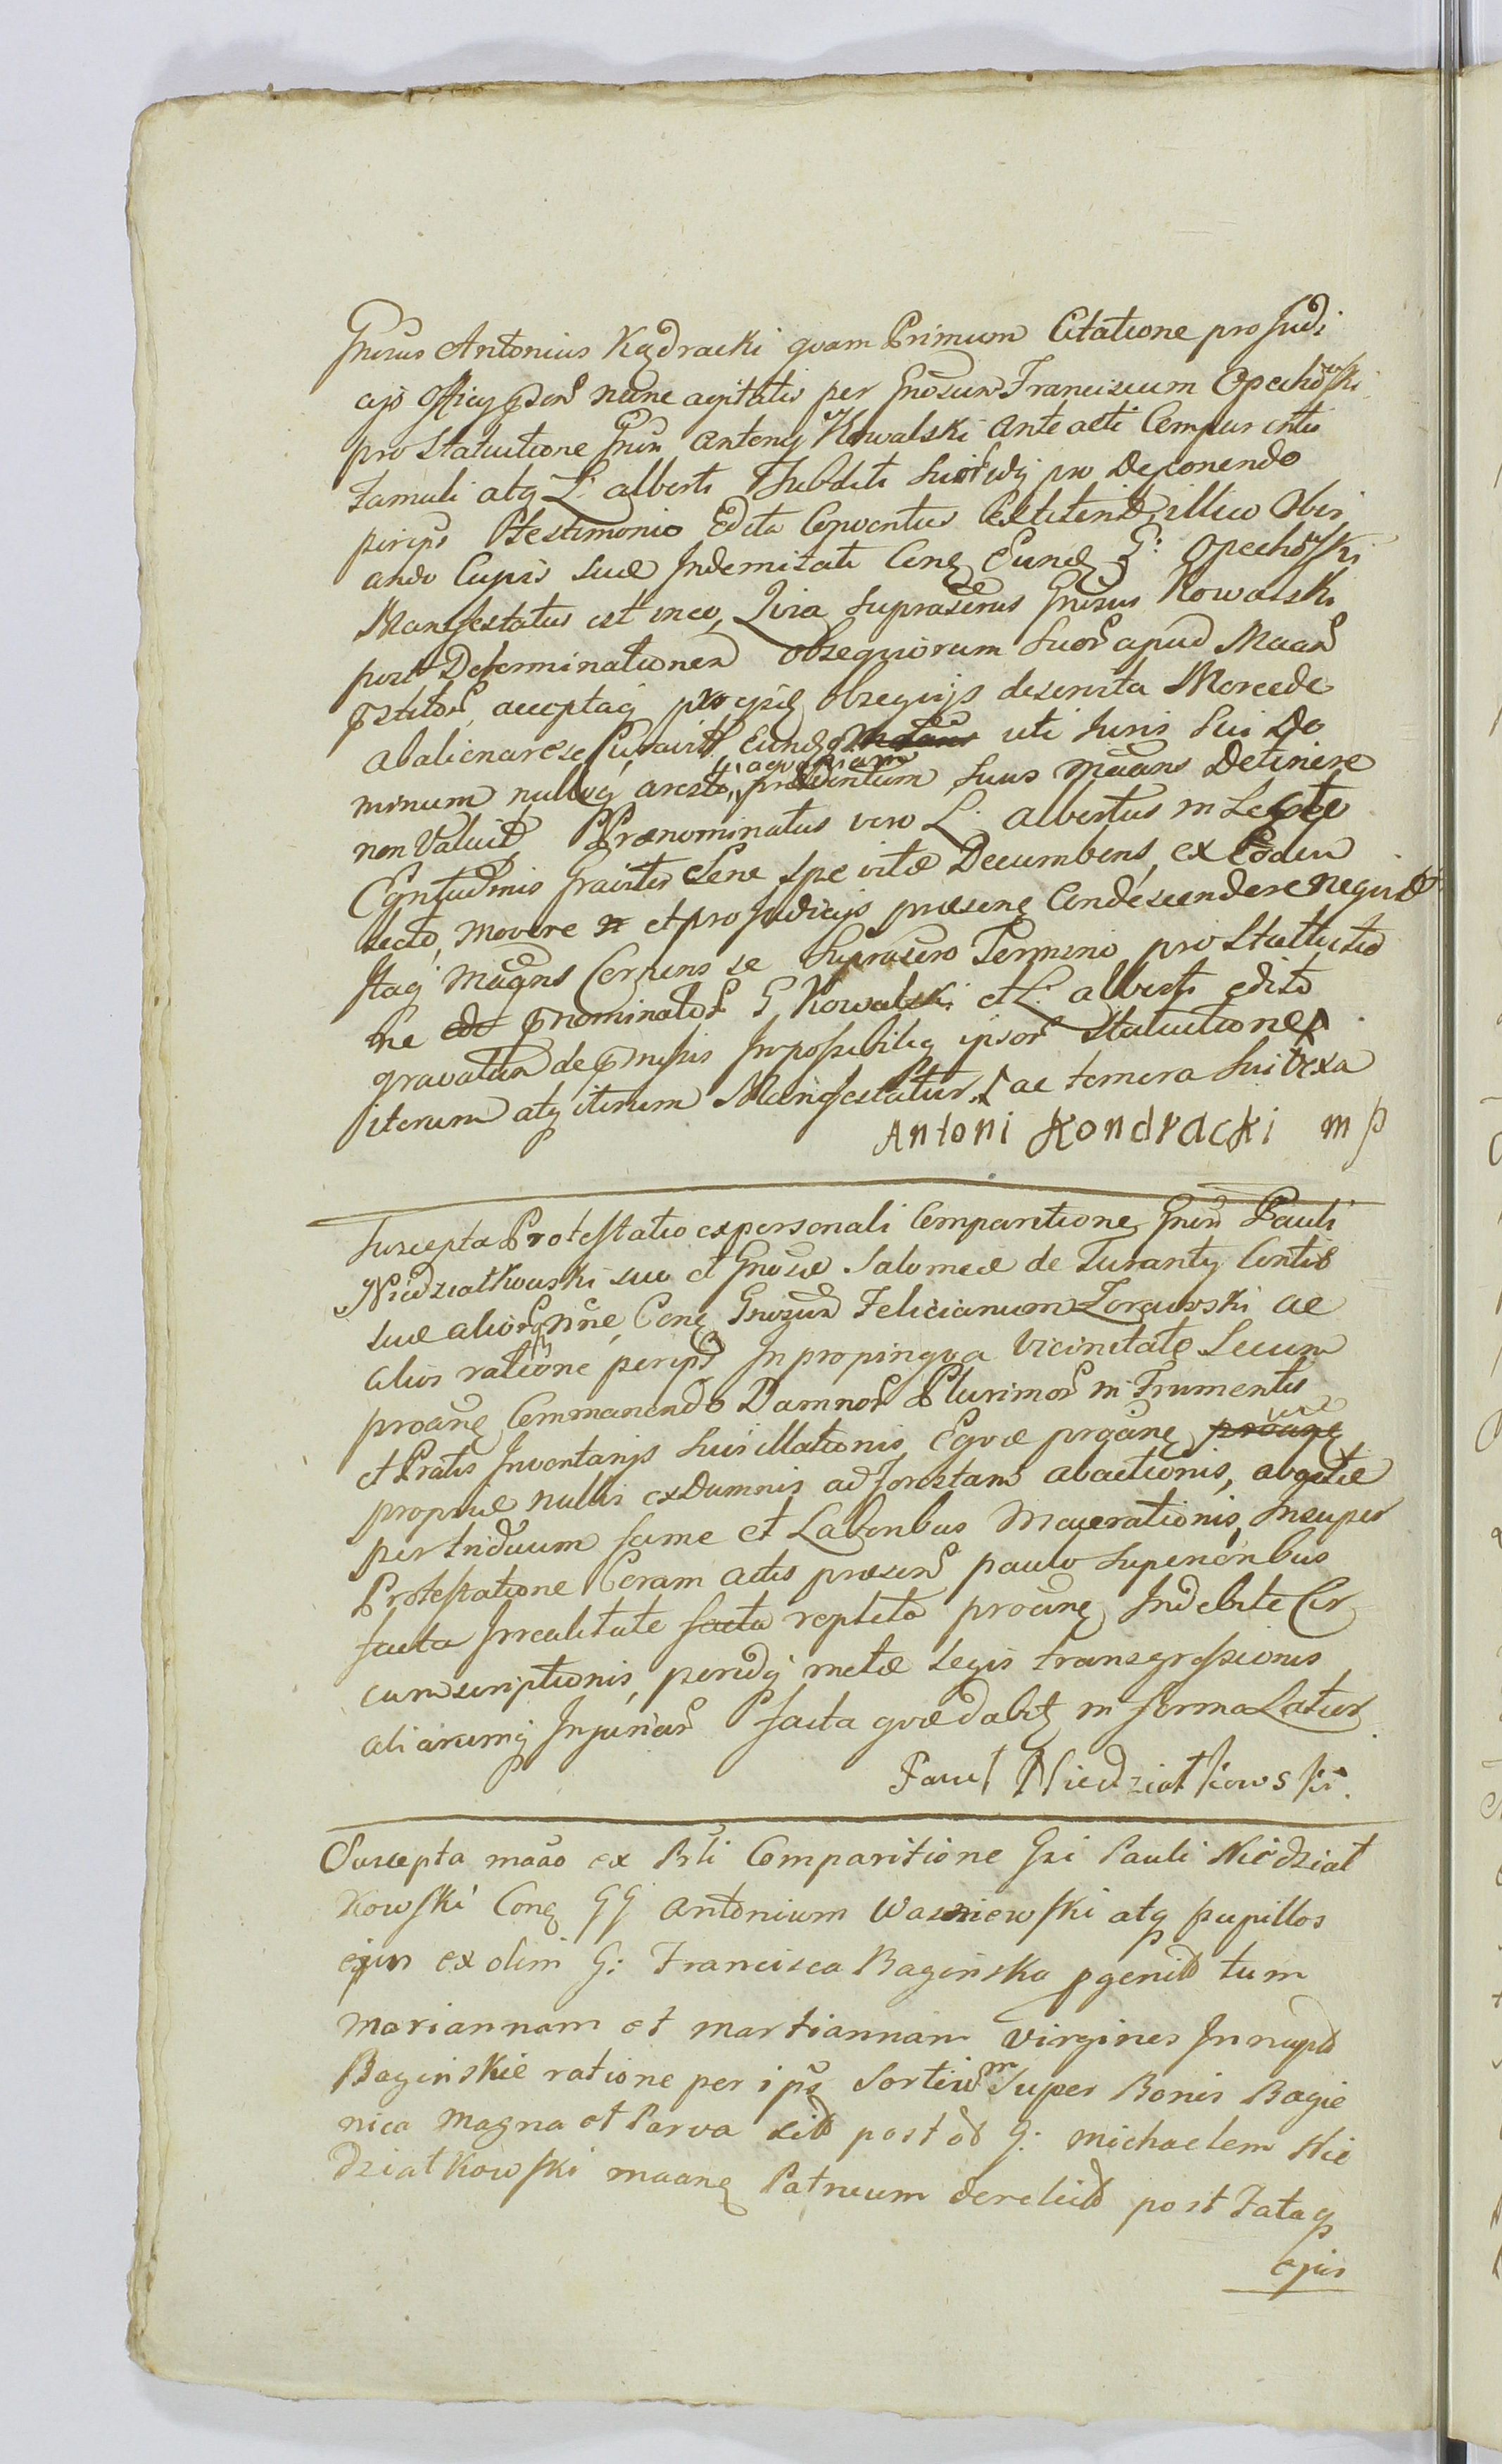 Gnrsus Antonius Kądracki quam Primum Citatione pro Judi
cijs officij psen nunc agitatis per Gnosum Franciscum Opechowski
pro Statuitione Gnsi Antonij Kowalski Anteacti Temporis
Famuli atq L: alberti Subditi Suor pro Deponendo
per ips Testimonio Edita Conventus Extiterit, illico Obvi
ando Cupis suæ Indemnitati Conq Eund G: Opechowski
Manifestatus est in eo, Quia Suprascrus Gnrsus Kowalski
post Determinationem obsequiorum Suor apud Maan
pstitor, acceptaq pro obsequijs deservita Mercede
abalienare se Curavit Eund uti Juris Sui Do
minum nulloq aresto, a quopiam Suus Maans Detinere
non Valuit Prænominatus vero L: Albertus in Lecto
Egritudinis Graviter Pene Spe vitæ Decumbens, ex Eodem
Lecto, movere et pro Judicijs præsene Condescendere nequit
Itaq Maans Cernens se Suprascro Termino pro Statuitio
ne pnominator G Kowalski et L: alberti edito
gravatum de pmissis Impossibiliq ipsor Statuitione
iterum atq iterum Manifestatur ac temera Sui Vexa
Antoni Kondracki mp
Suscepta Protestatio ex personali Comparitione Gnsi Pauli
Niedziałkowski suo et Gnosæ Salomeæ de Turanty Contis
suæ alior nne, Conq Gnosum Felicianum Zorawski ac
alios ratione per ips In propinqua Vicinitate Secum
proanq Commanendo Damnor Plurimor in Frumentis
et Pratis Inventarijs Suis illationis Equæ proanq
propriæ nullis ex Damnis ad Forestam abactionis, abactæ
per triduum fame et Laboribus Macerationis, Insuper
Protestatione Coram actis præsen paulo Superioribus
facta Irrealitate facta repleta proanq Indebite Cir
cumscriptionis, perindq metæ Legis transgressionis
aliarumq Injuriar facta quæ dabit in forma Latior.
Paweł Niedziałkowski.
Suscepta maão ex Prli Comparitione Gsi Pauli Niedział
kowski Conq GG Antonium Wasniewski atq pupillos
ejus ex olim G: Francisca Baginska pgenit tum
Mariannam et Martiannam Virgines Innupt
Baginskie ratione per ips Sortium Super Bonis Bagie
nica Magna et Parva sit post od G: Michaelem Nie
działkowski maanq Patruum derelict post Fataq
ejus